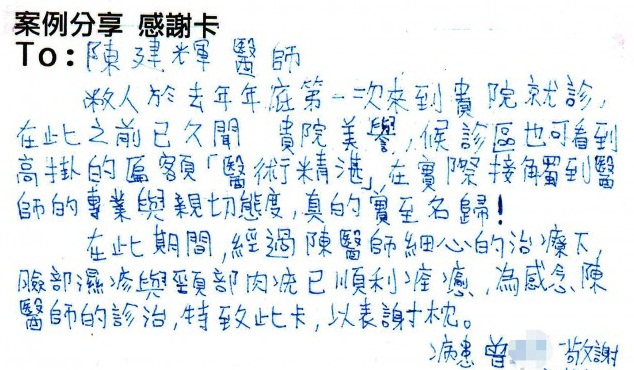 案例分享 感謝卡
To:陳建輝醫師
敝人於去年年底第一次來到貴院就診,
在此之前已久聞 貴院美譽,候診區也可看到
高掛的匾額「醫術精湛」,在實際接觸到醫
師的專業與親切態度,真的實至名歸!
在此期間,經過陳醫師細心的治療下,
臉部濕疹與頸部肉疣已順利痊癒,為感念陳
醫師的診治,特致此卡,以表謝忱。
病患曾 敬謝